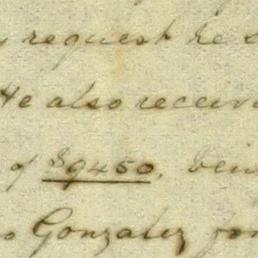 request he s
He also receiv
of $9450, bein
o Gonzalez for